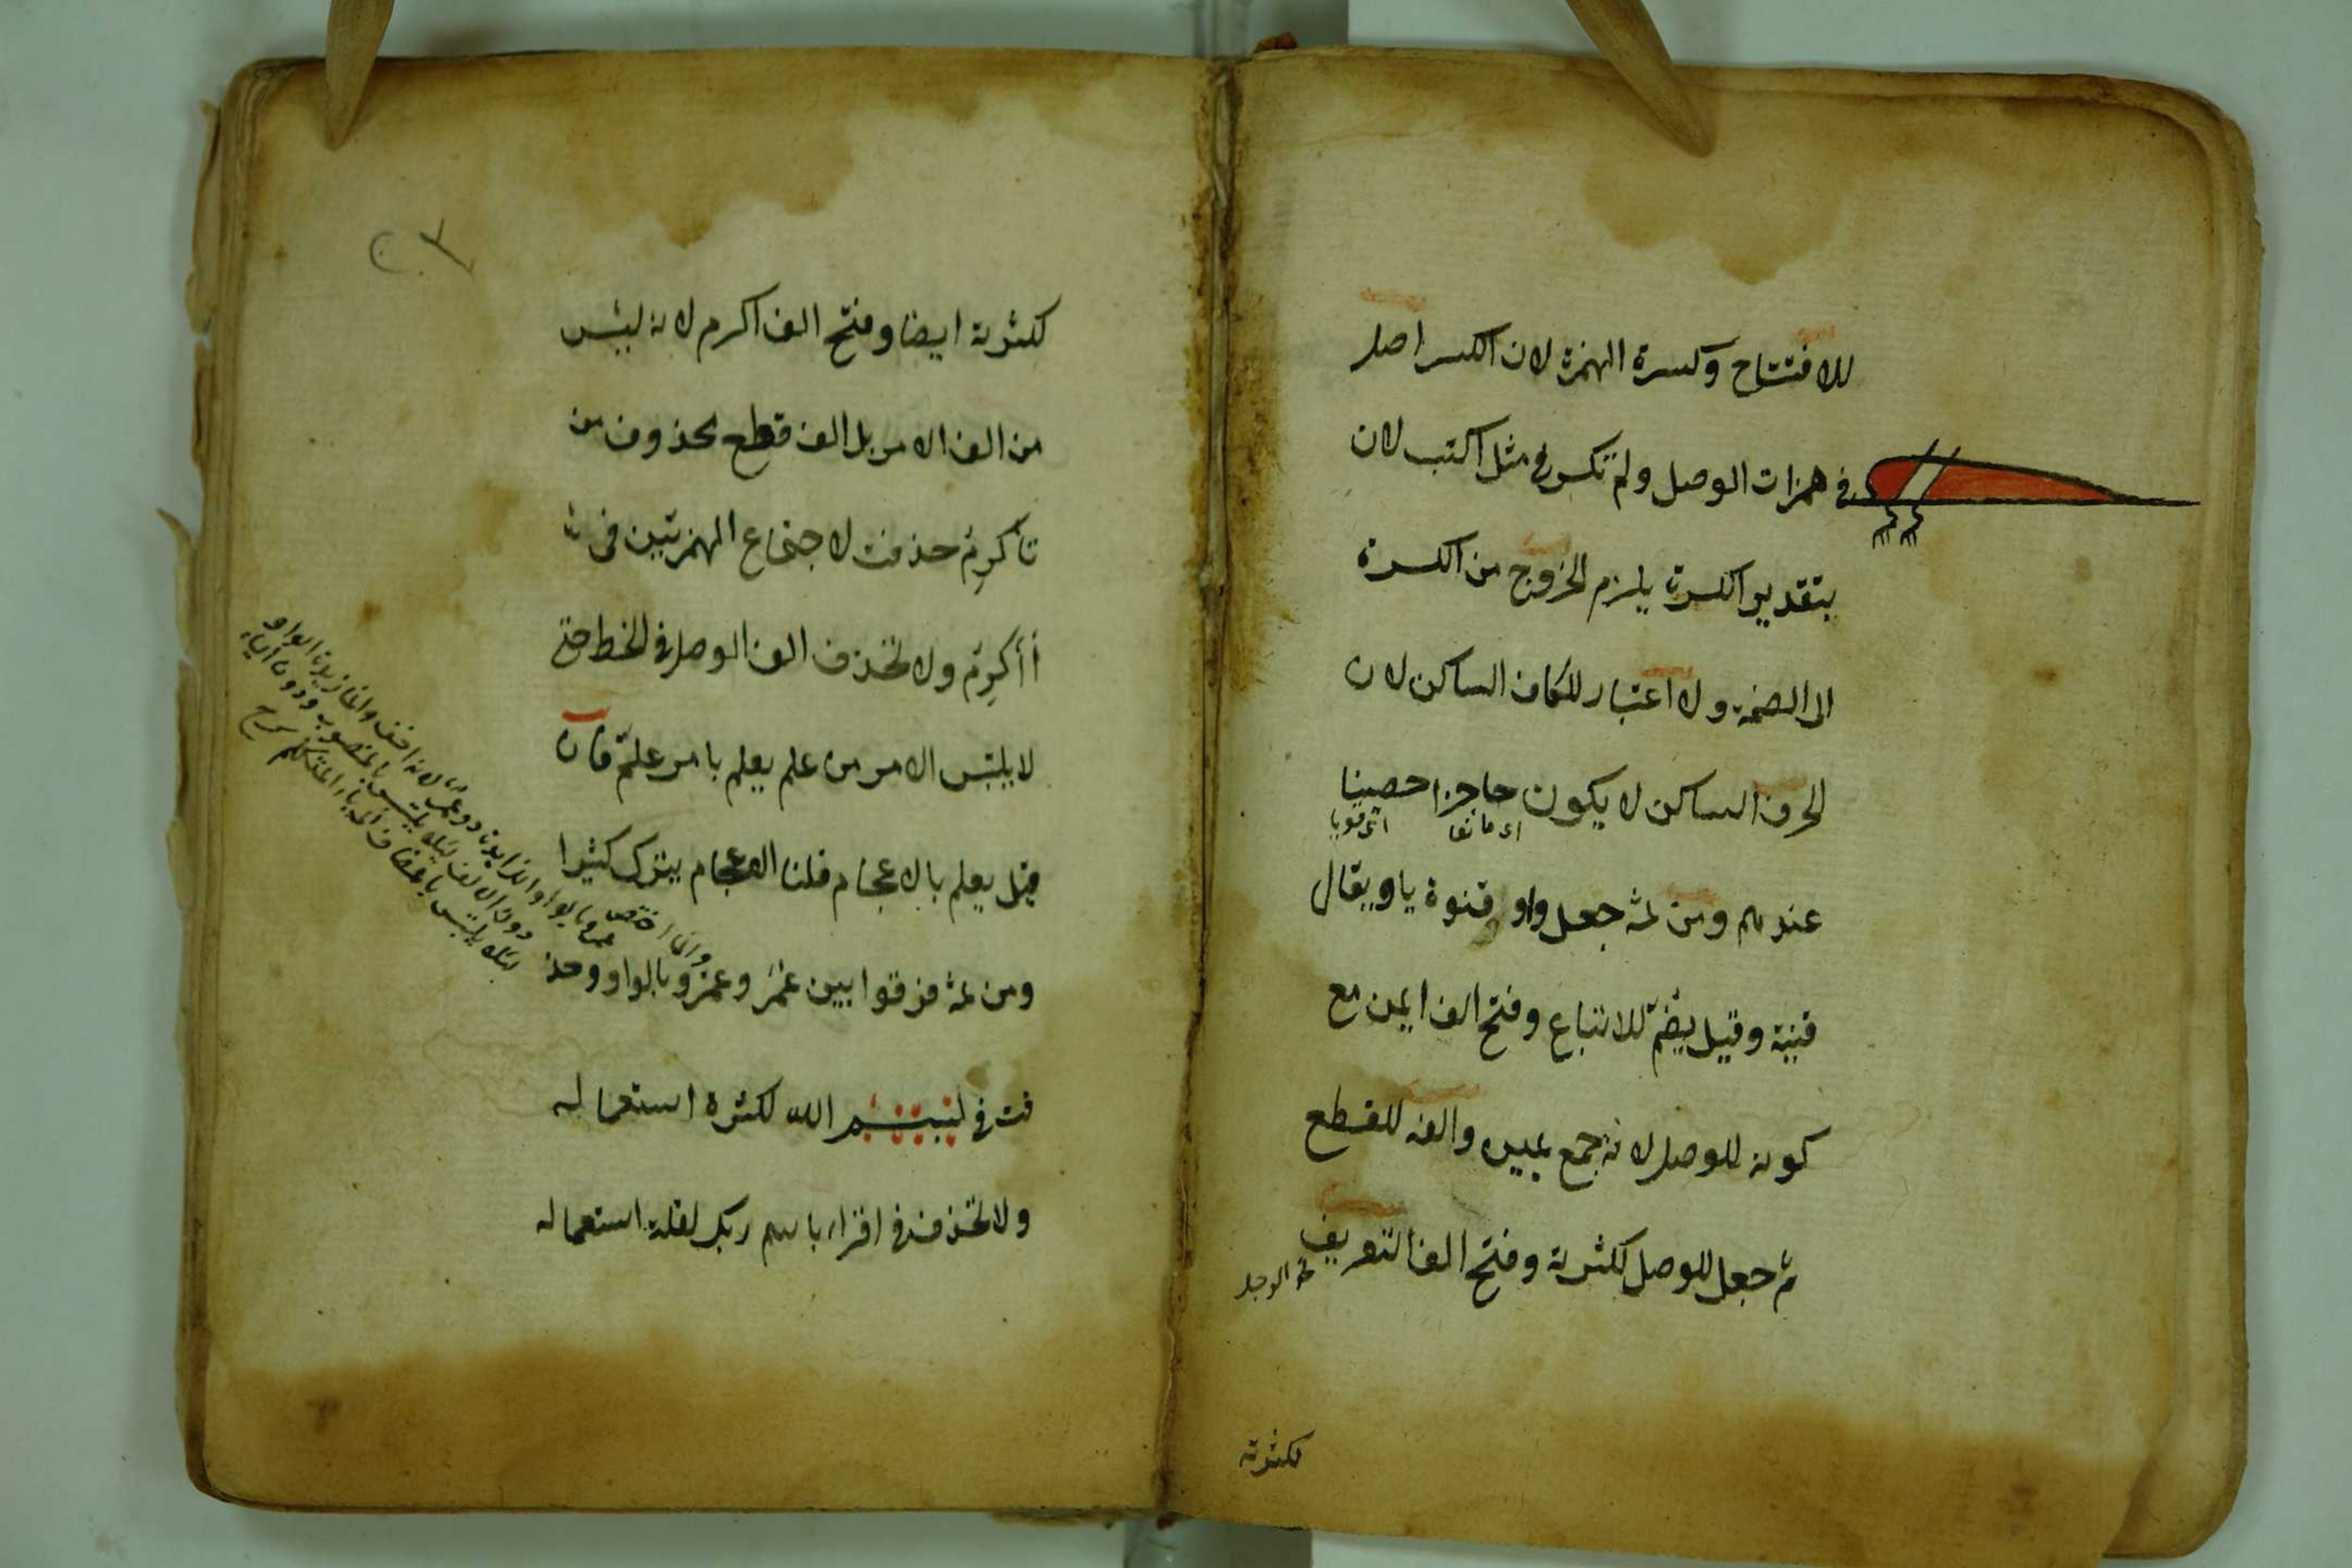 للافتتاح وكسرة الهمزة لان الكسر اصل
في همزات الوصل ولم تكسر في مثل اكتب لان
بتقدير الكسرة يلزم الخروج من الكسرة
الى الضمة ولا اعتبار للكاف الساكن لان
الحرف الساكن لا يكون حاجزا حصينا
اى مانعا
اى قويا
عندهم ومن ثمه جعل واو قنوة ياء ويقال
قنية وقيل يضم للاتباع وفتح الف ايمن مع
كونه للوصل لانه جمع يمين والفه للقطع
ثم جعل للوصل لكثرته وفتح الف التعريف
لكثرته
٢٣
لكثرته ايضا وفتح الف اكرم لانه ليس
من الف الامر بل الف قطع محذوف من
تأكرم حذفت لاجتماع الهمزتين في
أأكرم ولا تحذف الف الوصل في الخط حتى
لا يلتبس الامر من علم يعلم بامر علم فان
قيل يعلم بالاعجام قلنا الاعجام يترك كثيرا
ومن ثمه فرقوا بين عمر وعمرو بالواو وحذ
فت في بسم الله لكثرة استعماله
ولا تحذف في اقراء باسم ربك لقلة استعماله